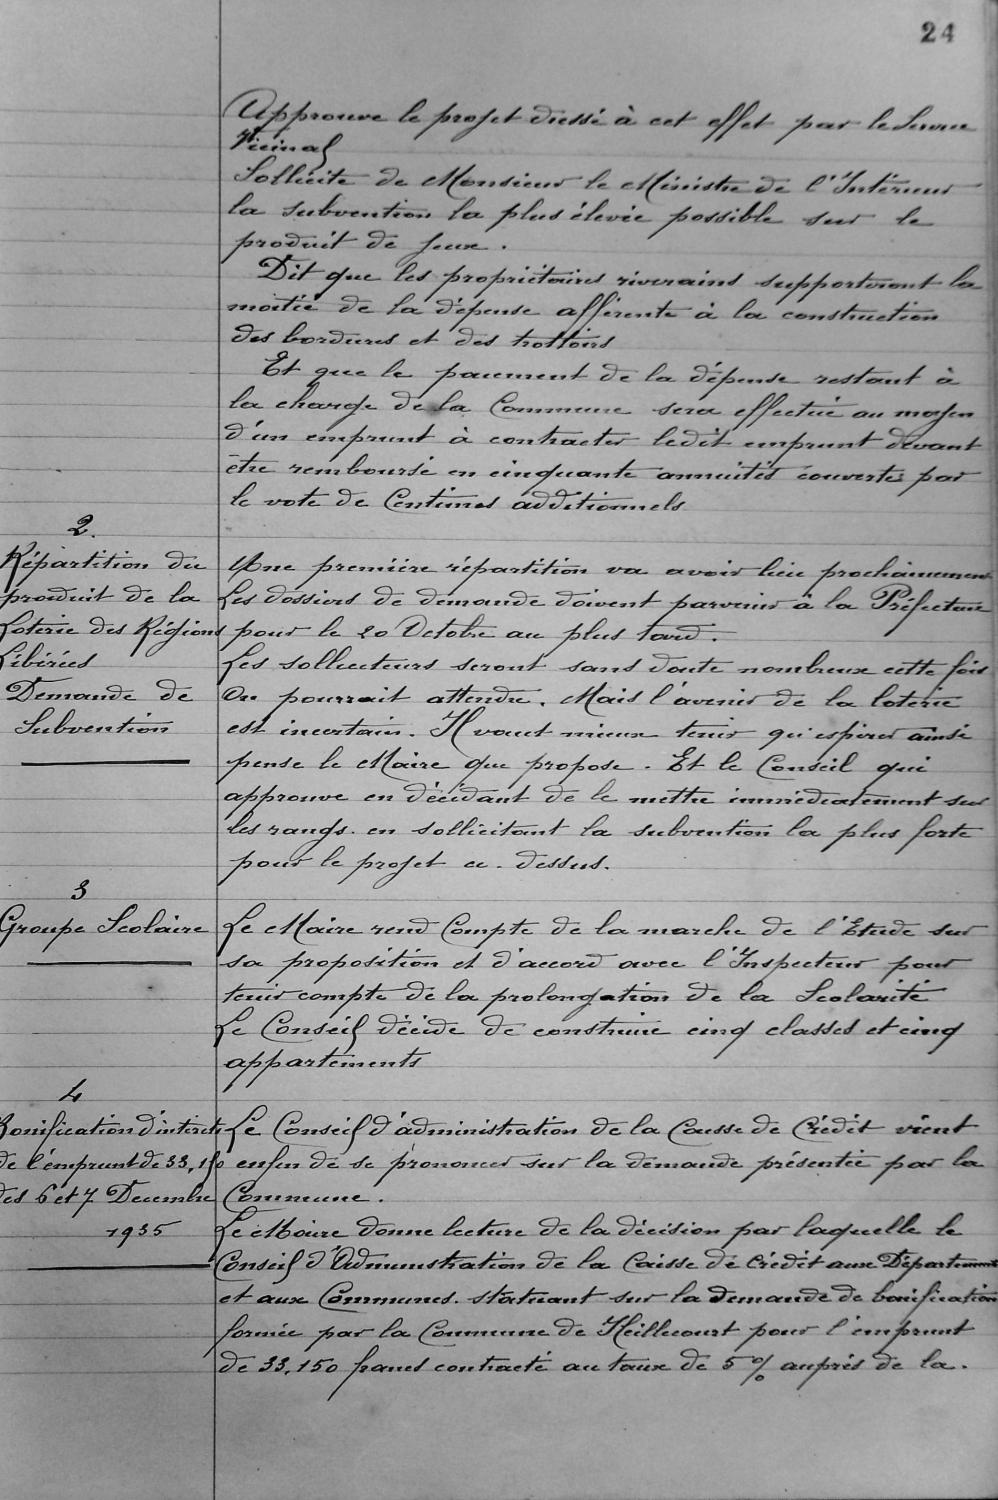 24
Approuve le projet dressé à cet effet par le Service
Vicinal
Sollicite de Monsieur le Ministre de l'Intérieur
la subvention la plus élevée possible sur le
produit de jeux.
Dit que les propriétaires riverains supporteront la
moitié de la dépense afférente à la construction
des bordures et des trottoirs
Et que le paiement de la dépense restant à
la charge de la Commune sera effectué au moyen
d'un emprunt à contracter ledit emprunt devant
être remboursé en cinquante annuités couvertes par
le vote de Centimes additionnels
2.
Répartition du
produit de la
Loterie des Régions
Libérées
Demande de
Subvention
Une première répartition va avoir lieu prochainement
Les dossiers de demande doivent parvenir à la Préfecture
pour le 20 Octobre au plus tard.
Les solliciteurs seront sans doute nombreux cette fois
On pourrait attendre. Mais l'avenir de la loterie
est incertain. Il vaut mieux tenir qu'espérer ainsi
pense le Maire que propose. Et le Conseil qui
approuve en décidant de le mettre immédiatement sur
les rangs. en sollicitant la subvention la plus forte
pour le projet ci-dessus.
3
Groupe Scolaire
Le Maire rend Compte de la marche de l'Etude sur
sa proposition et d'accord avec l'Inspecteur pour
tenir compte de la prolongation de la Scolarité
Le Conseil décide de construire cinq classes et cinq
appartements
4
Bonification d'intérêts
de l'emprunt de 33,150
des 6 et 7 Decembre
1935
Le Conseil d'administration de la Caisse de Crédit vient
enfin de se prononcer sur la demande présentée par la
Commune.
Le Maire donne lecture de la décision par laquelle le
Conseil d'Administration de la Caisse de Crédit aux Départements
et aux Communes. statuant sur la demande de bonification
formée par la Commune de Heillecourt pour l'emprunt
de 33,150 francs contracté au taux de 5% auprès de la.